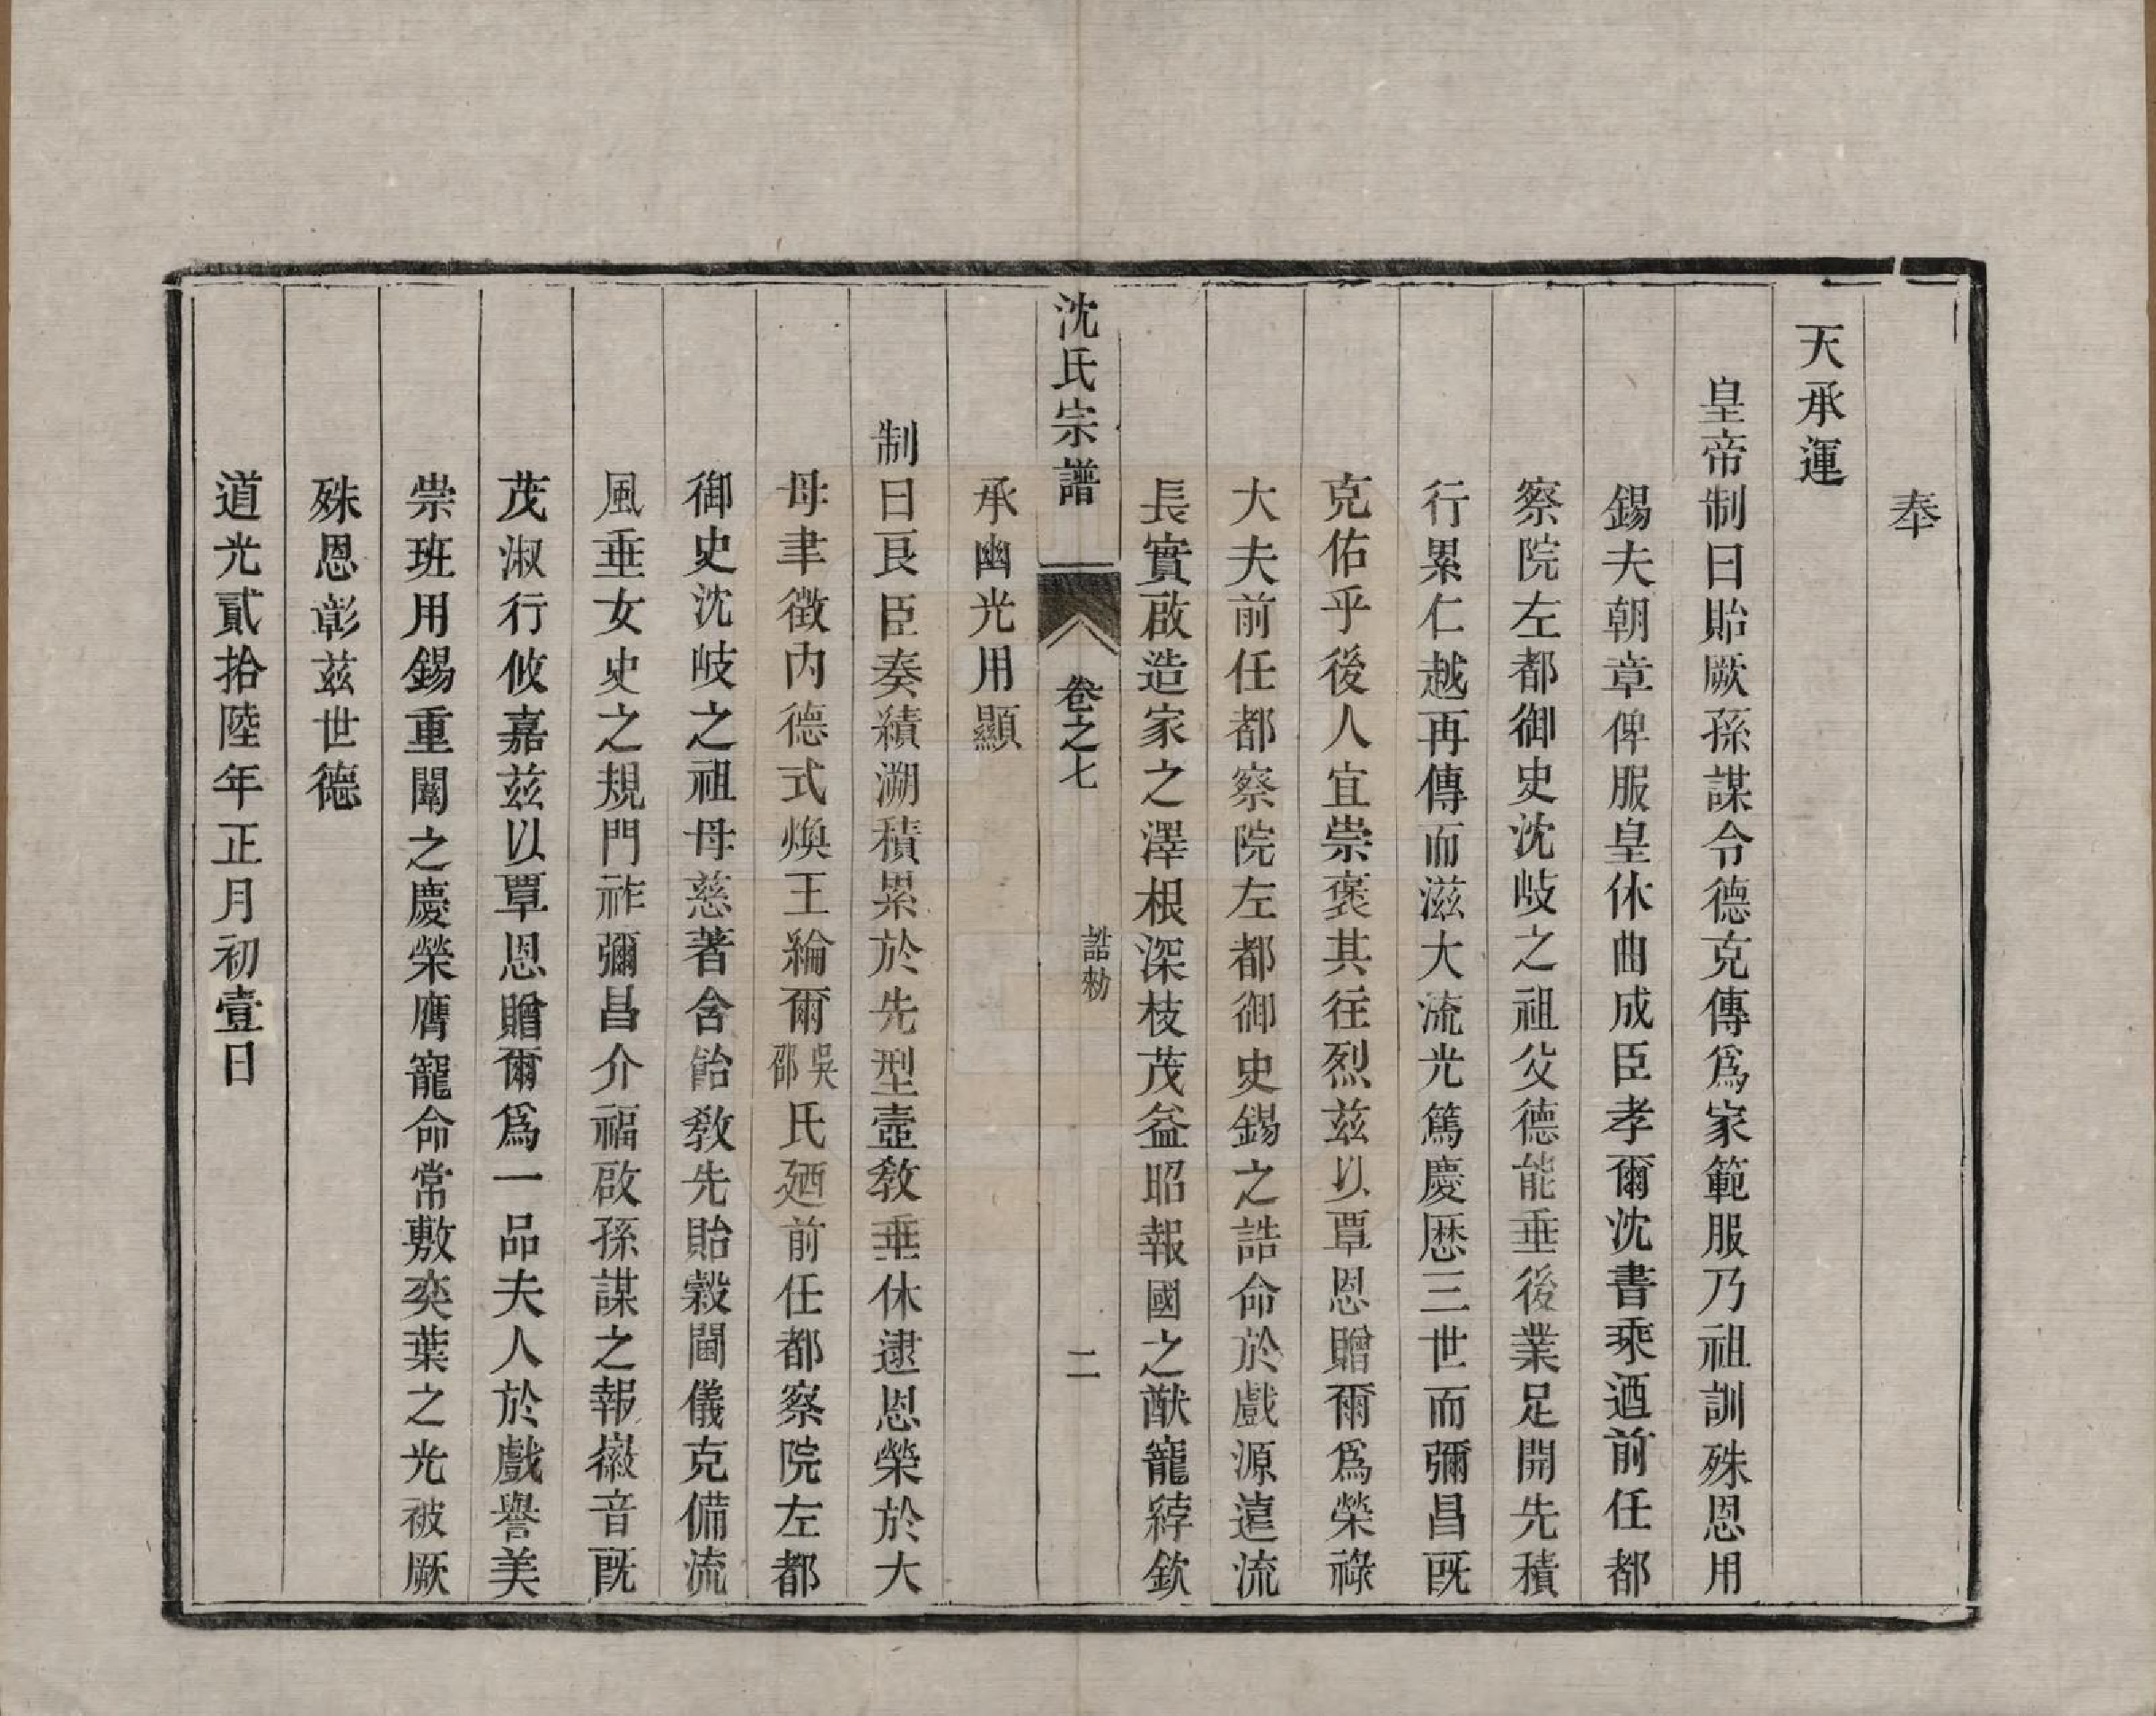 奉
天承運
皇帝制曰貽厥孫謀令德克傳爲家範服乃祖訓殊恩用
錫夫朝章俾服皇休曲成臣孝爾沈書乘迺前任都
察院左都御史沈岐之祖父德能垂後業足開先積
行累仁越再傳而滋大流光篤慶歷三世而彌昌旣
克佑乎後人宜崇褒其往烈茲以覃恩贈爾爲榮祿
大夫前任都察院左都御史錫之誥命於戲源遠流
長實啟造家之澤根深枝茂益昭報國之猷寵綍欽
承幽光用顯
沈氏宗譜
卷之七
誥勑
二
制曰良臣奏績溯積累於先型壼敎垂休逮恩榮於大
母聿徵內德式煥王綸爾吳邵氏廼前任都察院左都
御史沈岐之祖母慈著含飴敎先貽穀閫儀克備流
風垂女史之規門祚彌昌介福啟孫謀之報徽音旣
茂淑行攸嘉茲以覃恩贈爾爲一品夫人於戲譽美
崇班用錫重闈之慶榮膺寵命常敷奕葉之光被厥
殊恩彰茲世德
道光貳拾陸年正月初壹日